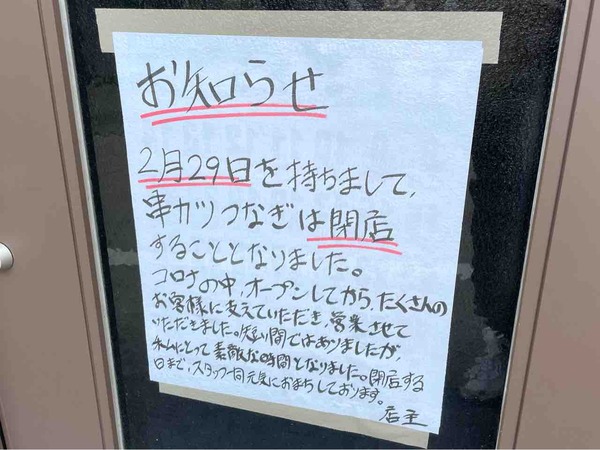 お知らせ
2月29日を持ちまして、
串カツつなぎは閉店
することとなりました。
コロナの中、オープンしてから、たくさんの
お客様に支えていただき、営業させて
いただきました。短い間ではありましたが、
私にとって素敵な時間となりました。閉店する
日まで、スタッフ一同元気におまちしております。
店主